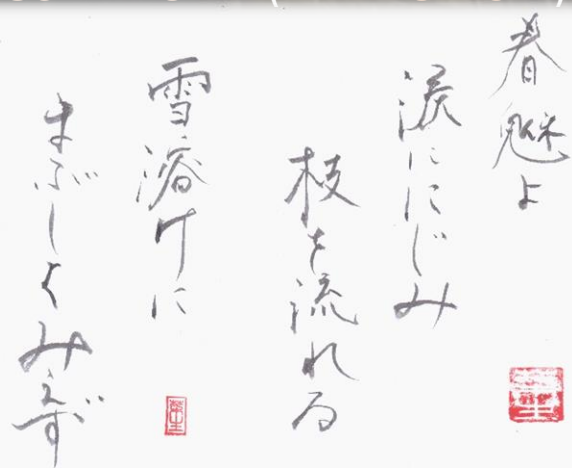 春魅よ
涙ににじみ
枝を流れる
雪溶けに
まぶしくみえず